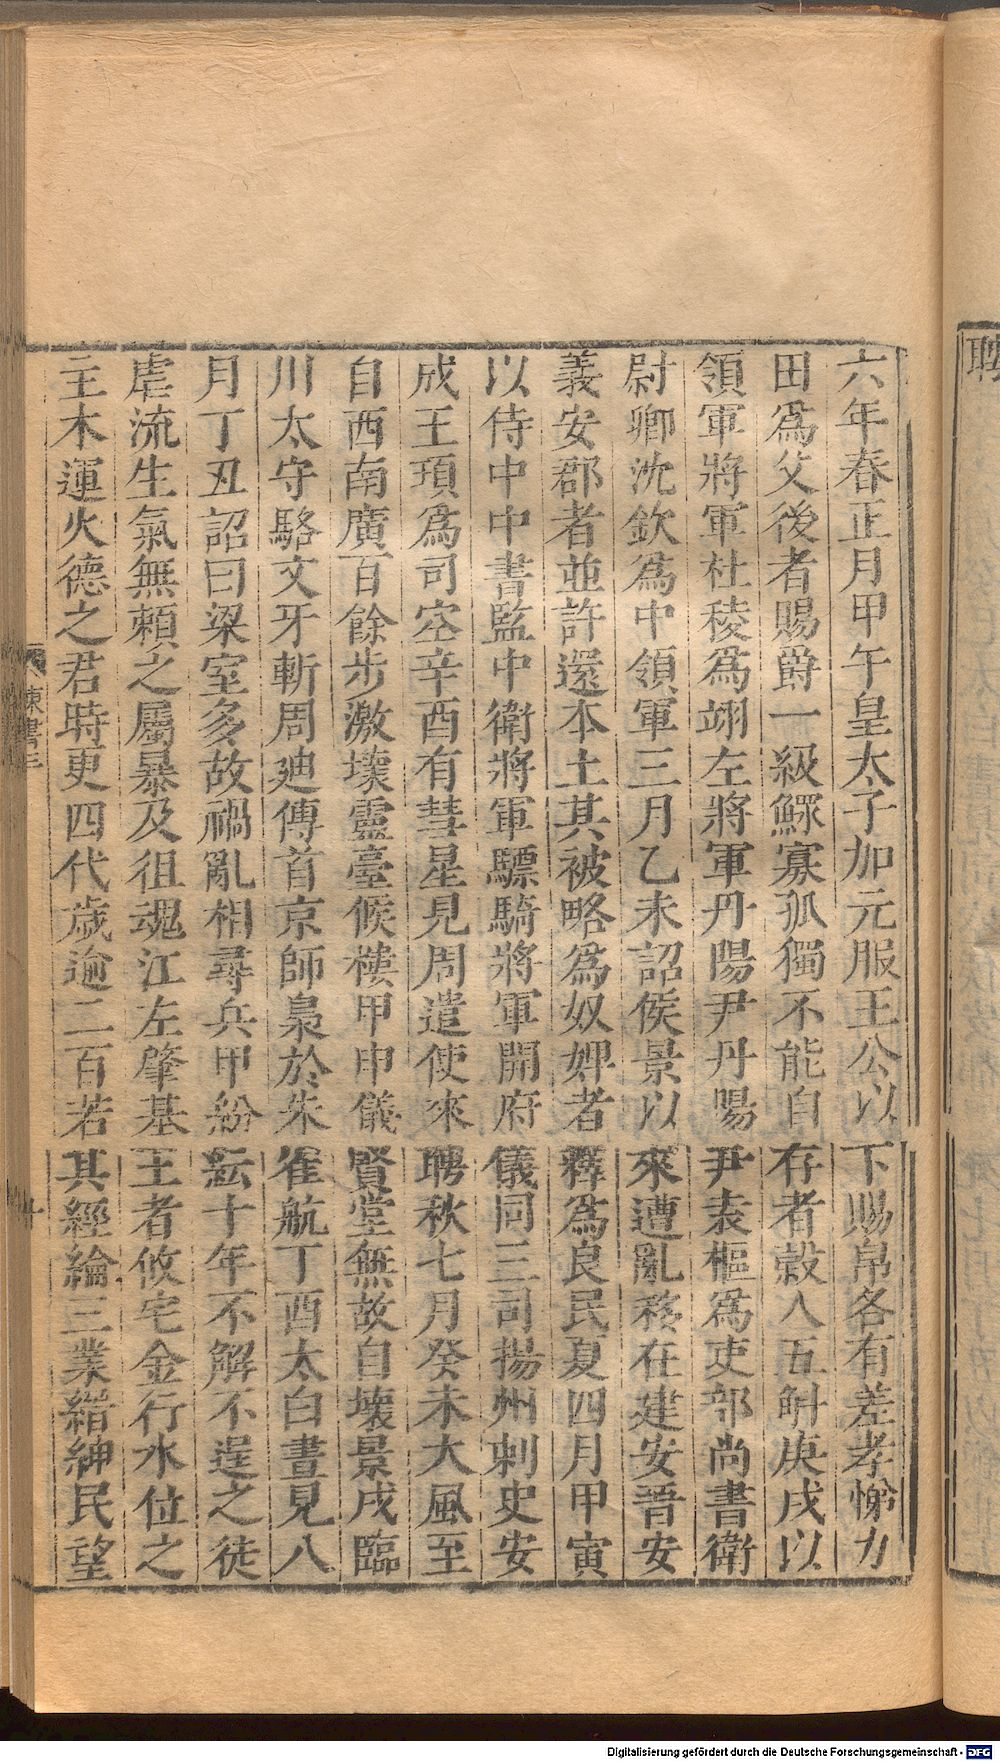 六年春正月甲午皇太子加元服王公以下賜帛各有差孝悌力
田爲父後者賜爵一級鰥寡孤獨不能自存者穀人五斛庚戌以
領軍將軍杜稜爲翊左將軍丹陽尹丹陽尹袁樞爲吏部尚書衛
尉卿沈欽爲中領軍三月乙未詔侯景以來遭亂移在建安晉安
義安郡者並許還本土其被略爲奴婢者釋爲良民夏四月甲寅
以侍中中書監中衛將軍驃騎將軍開府儀同三司揚州刺史安
成王頊爲司空辛酉有彗星見周遣使來聘秋七月癸未大風至
自西南廣百餘步激壞靈臺候樓甲申儀賢堂無故自壞景戌臨
川太守駱文牙斬周迪傳首京師梟於朱雀航丁酉太白晝見八
月丁丑詔曰梁室多故禍亂相尋兵甲紛紜十年不解不逞之徒
虐流生氣無賴之屬暴及徂魂江左肇基王者攸宅金行水位之
主木運火德之君時更四代歲逾二百若其經綸三業縉紳民望
陳書三
十
聘
Digitalisierung gefördert durch die Deutsche Forschungsgemeinschaft - DFG